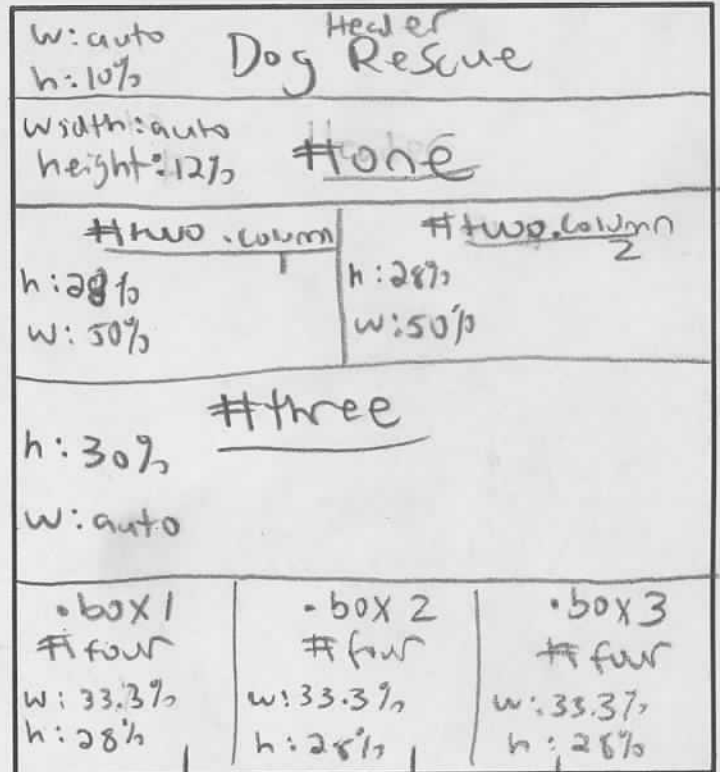 Header
w:auto
h:10%
Dog Rescue
width:auto
height:12%
#one
#two.column
1
h:28%
w:50%
#two.column
2
h:28%
w:50%
#three
h:30%
w:auto
.box1
#four
w:33.3%
h:28%
.box2
#four
w:33.3%
h:28%
.box3
#four
w:33.3%
h:28%